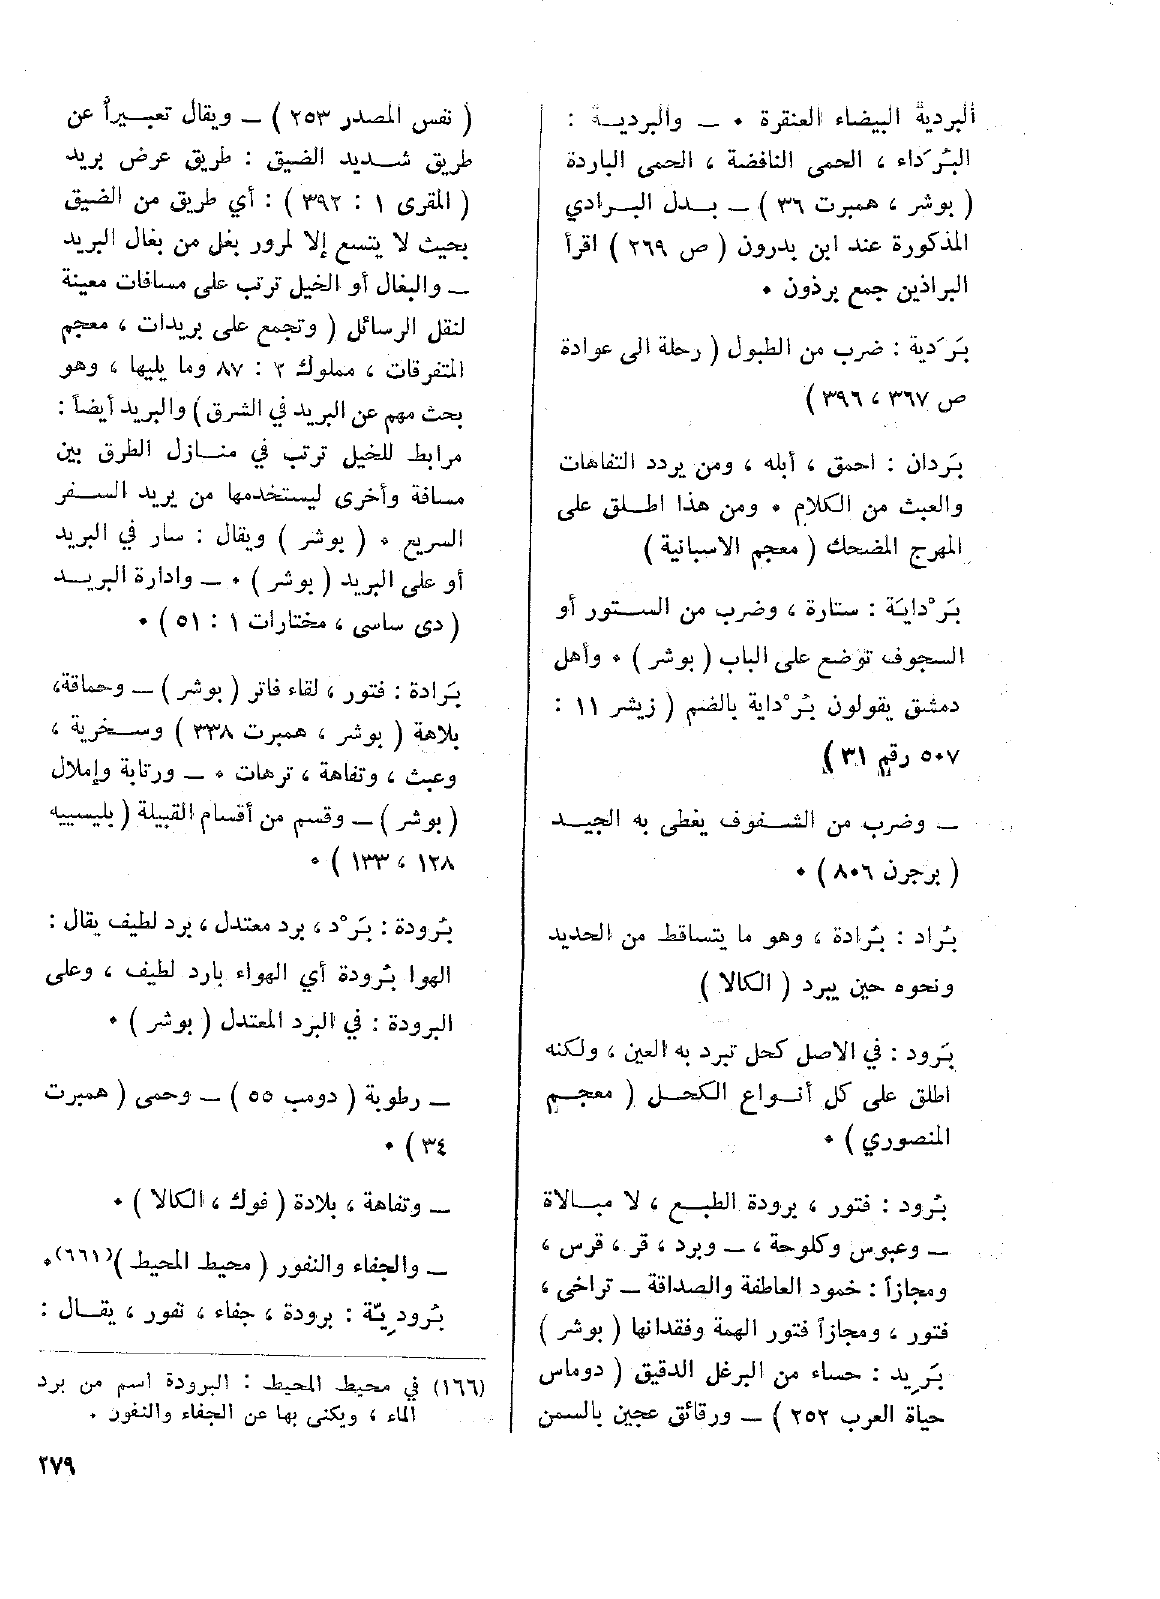 البردية البيضاء العنقرة • ــ والبرديــة :
البُرَداء ، الحمى النافضة ، الحمى الباردة
( بوشر ، همبرت ٣٦ ) ــ بــدل البــرادي
المذكورة عند ابن بدرون ( ص ٢٦٩ ) اقرأ
البراذين جمع برذون •
بَرَدية : ضرب من الطبول ( رحلة الى عوادة
ص ٣٦٧ ، ٣٩٦ )
بَردان : احمق ، أبله ، ومن يردد التفاهات
والعبث من الكلام • ومن هذا اطــلق على
المهرج المضحك ( معجم الاسبانية )
بَرْدايَة : ستارة ، وضرب من الستور أو
السجوف توضع على الباب ( بوشر ) • وأهل
دمشق يقولون بُرْداية بالضم ( زيشر ١١ :
٥٠٧ رقم ٣١ )
ــ وضرب من الشــفوف يغطى به الجيــد
( برجرن ٨٠٦ ) •
بُراد : بُرادة ، وهو ما يتساقط من الحديد
ونحوه حين يبرد ( الكالا )
بَرود : في الاصل كحل تبرد به العين ، ولكنه
اطلق على كل أنــواع الكحــل ( معجــم
المنصوري ) •
بُرود : فتور ، برودة الطبــع ، لا مبــالاة
ــ وعبوس وكلوحة ، ــ وبرد ، قر ، قرس ،
ومجازاً : خمود العاطفة والصداقة ــ تراخى ،
فتور ، ومجازاً فتور الهمة وفقدانها ( بوشر )
بَرِيد : حساء من البرغل الدقيق ( دوماس
حياة العرب ٢٥٢ ) ــ ورقائق عجين بالسمن
( نفس المصدر ٢٥٣ ) ــ ويقال تعبــيراً عن
طريق شــديد الضيق : طريق عرض بريد
( المقرى ١ : ٣٩٢ ) : أي طريق من الضيق
بحيث لا يتسع إلا لمرور بغل من بغال البريد
ــ والبغال أو الخيل ترتب على مسافات معينة
لنقل الرسائل ( وتجمع على بريدات ، معجم
المتفرقات ، مملوك ٢ : ٨٧ وما يليها ، وهو
بحث مهم عن البريد في الشرق ) والبريد أيضاً :
مرابط للخيل ترتب في منــازل الطرق بين
مسافة وأخرى ليستخدمها من يريد الســفر
السريع • ( بوشر ) ويقال : سار في البريد
أو على البريد ( بوشر ) • ــ وادارة البريــد
( دى ساسى ، مختارات ١ : ٥١ ) •
بَرادة : فتور ، لقاء فاتر ( بوشر ) ــ وحماقة،
بلاهة ( بوشر ، همبرت ٢٣٨ ) وســخرية ،
وعبث ، وتفاهة ، ترهات • ــ ورتابة وإملال
( بوشر ) ــ وقسم من أقسام القبيلة ( بليسييه
١٢٨ ، ١٣٣ ) •
بُرودة : بَرْد ، برد معتدل ، برد لطيف يقال :
الهوا بُرودة أي الهواء بارد لطيف ، وعلى
البرودة : في البرد المعتدل ( بوشر ) •
ــ رطوبة ( دومب ٥٥ ) ــ وحمى ( همبرت
٣٤ ) •
ــ وتفاهة ، بلادة ( فوك ، الكالا ) •
ــ والجفاء والنفور ( محيط المحيط )(١٦٦)•
بُرودِيّة : برودة ، جفاء ، نفور ، يقــال :
(١٦٦) في محيط المحيط : البرودة اسم من برد
الماء ، ويكنى بها عن الجفاء والنفور .
٢٧٩